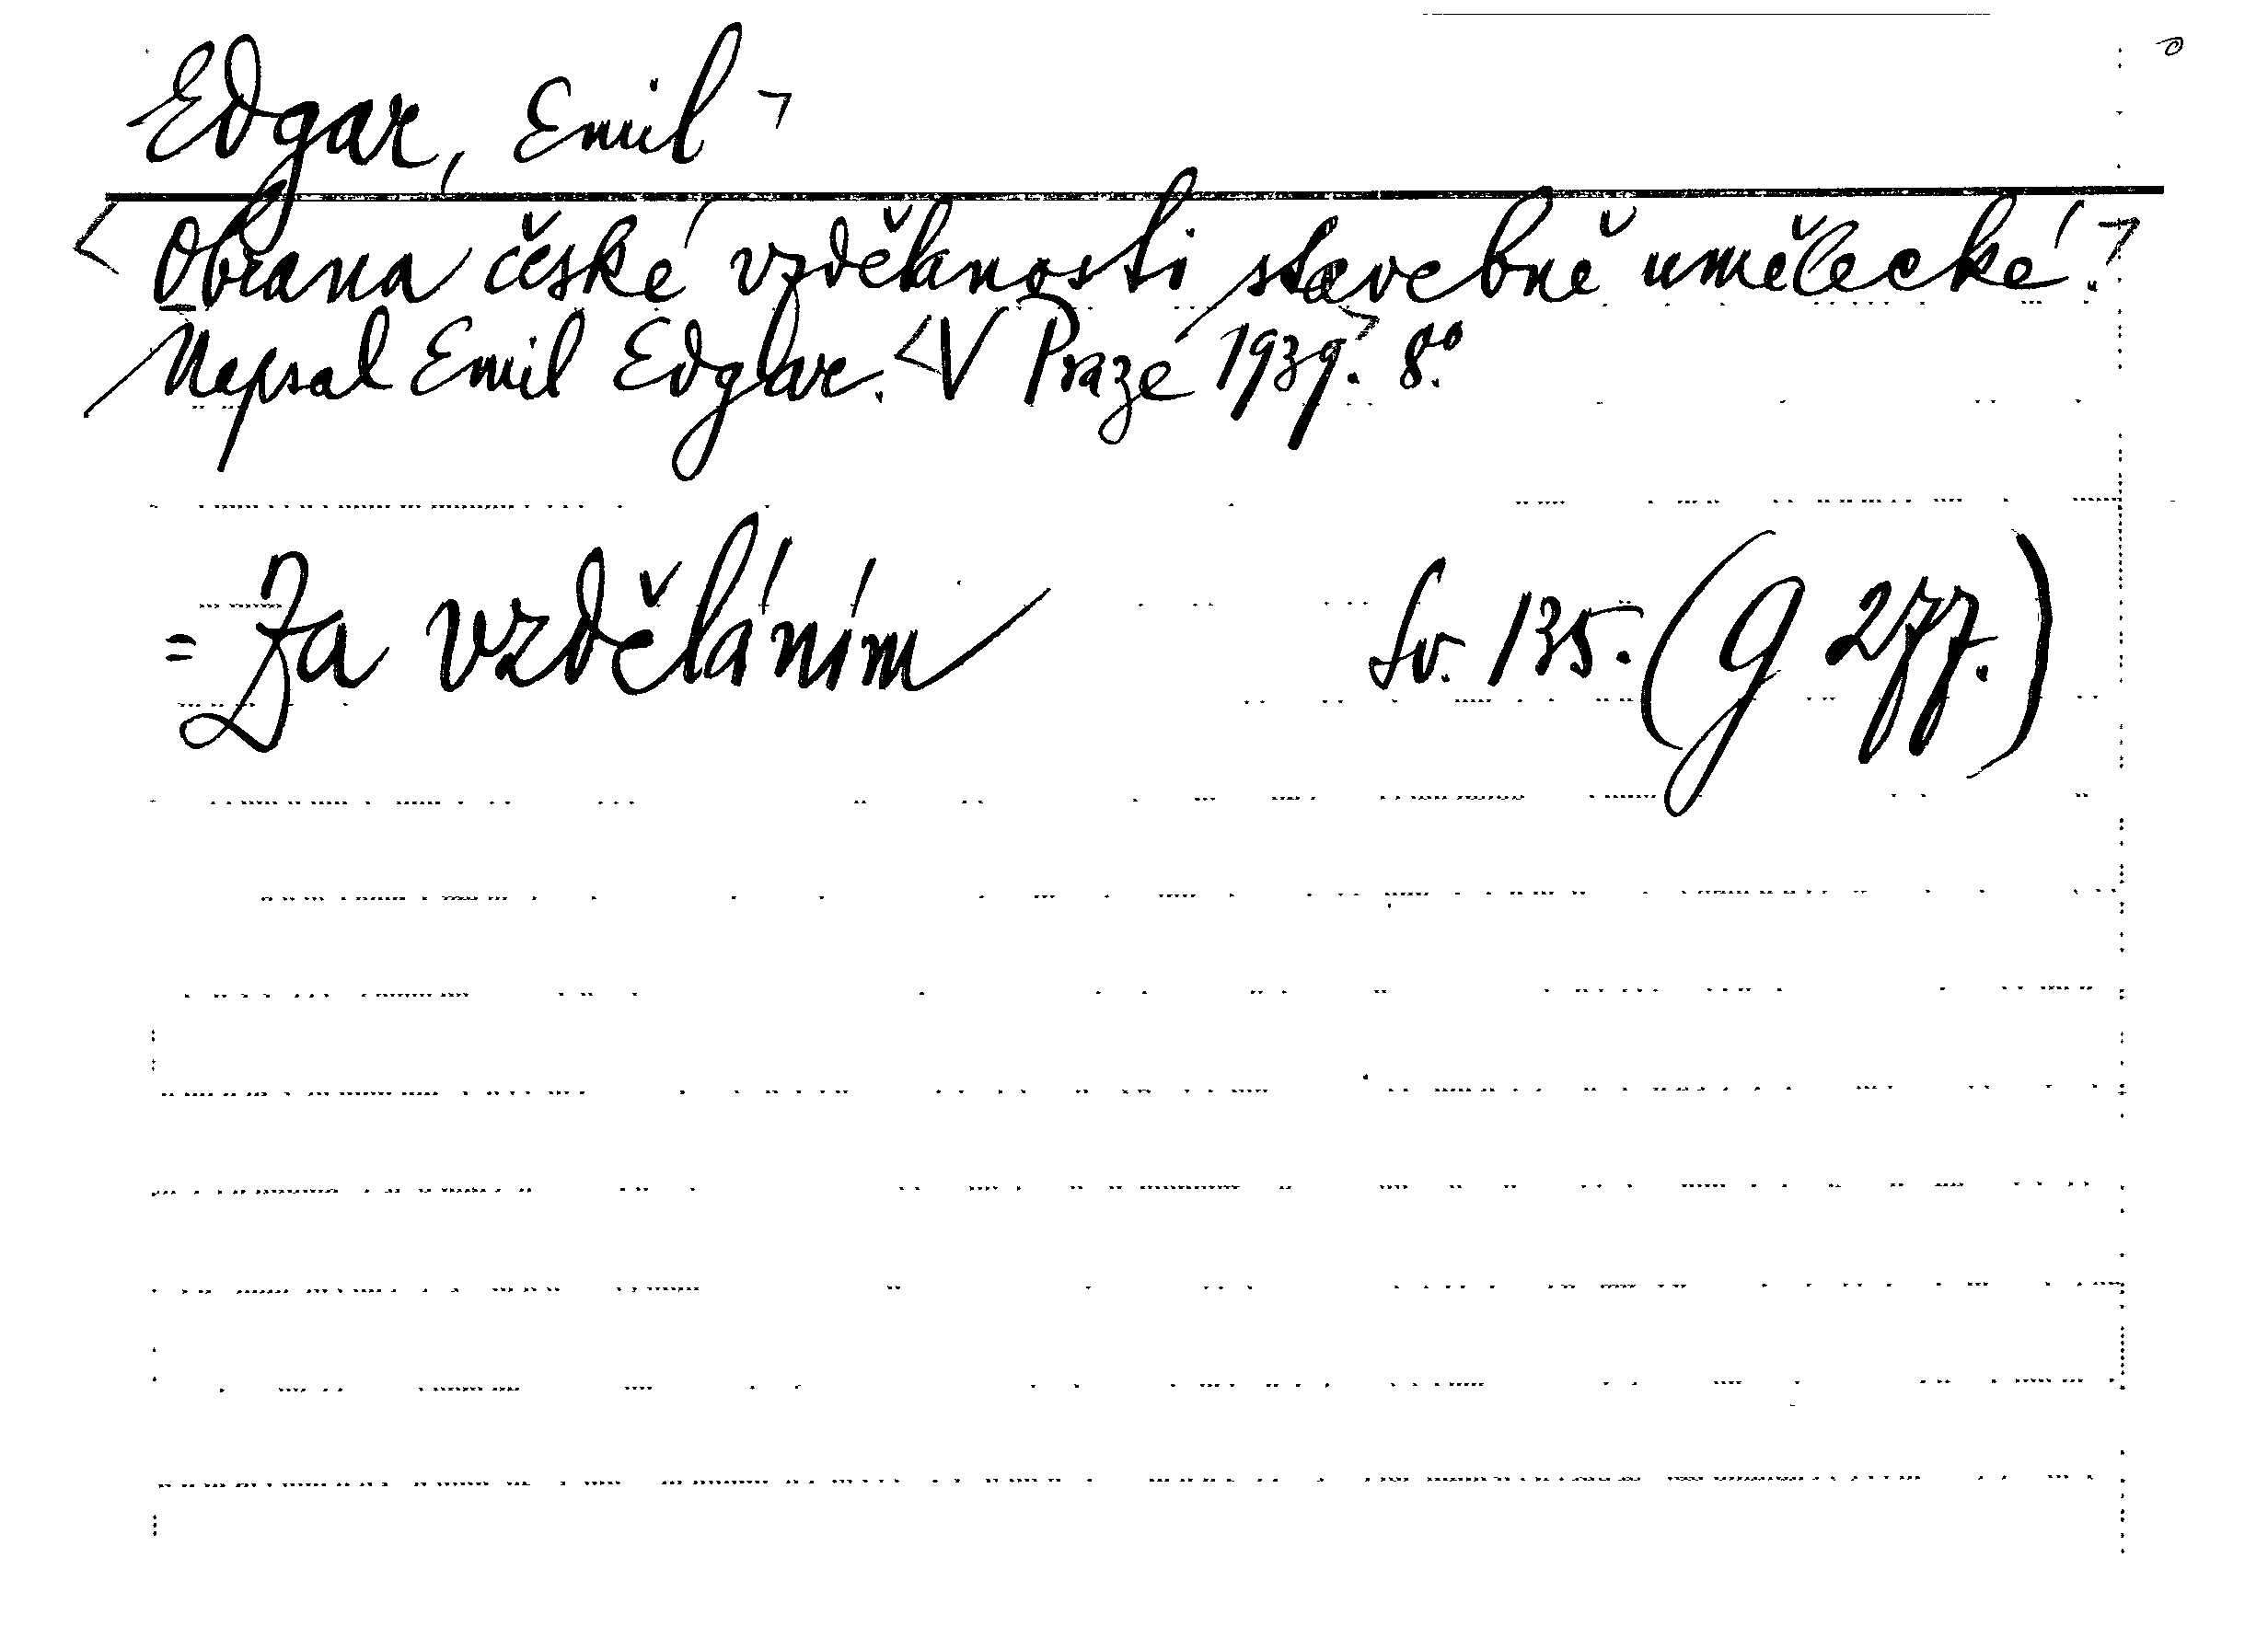 Edgar, Emil ¬
< Obrana české vzdělanosti stavebně umělecké. ¬
Napsal Emil Edgar. < V Praze 1939. ¬ 8.°
= Za vzděláním Sv. 135. (G 277.)